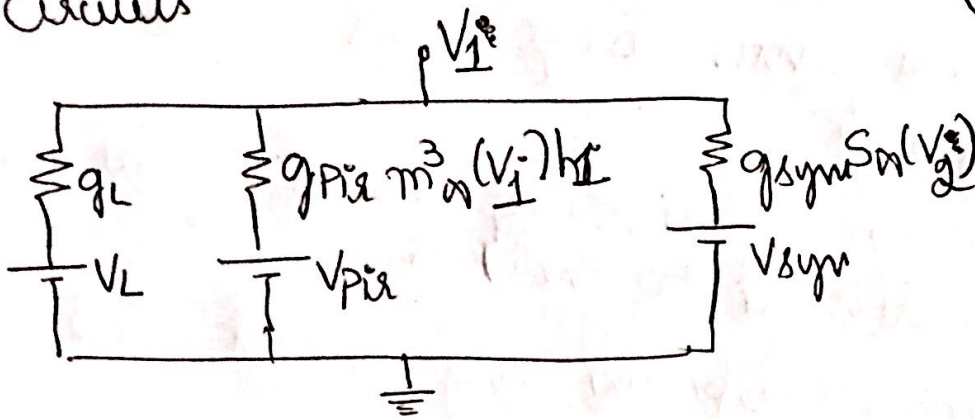 Circuits
V₁
g_L
g_Pir m³_∞(V₁)h₁
g_syn S_∞(V₂)
V_L
V_Pir
V_syn